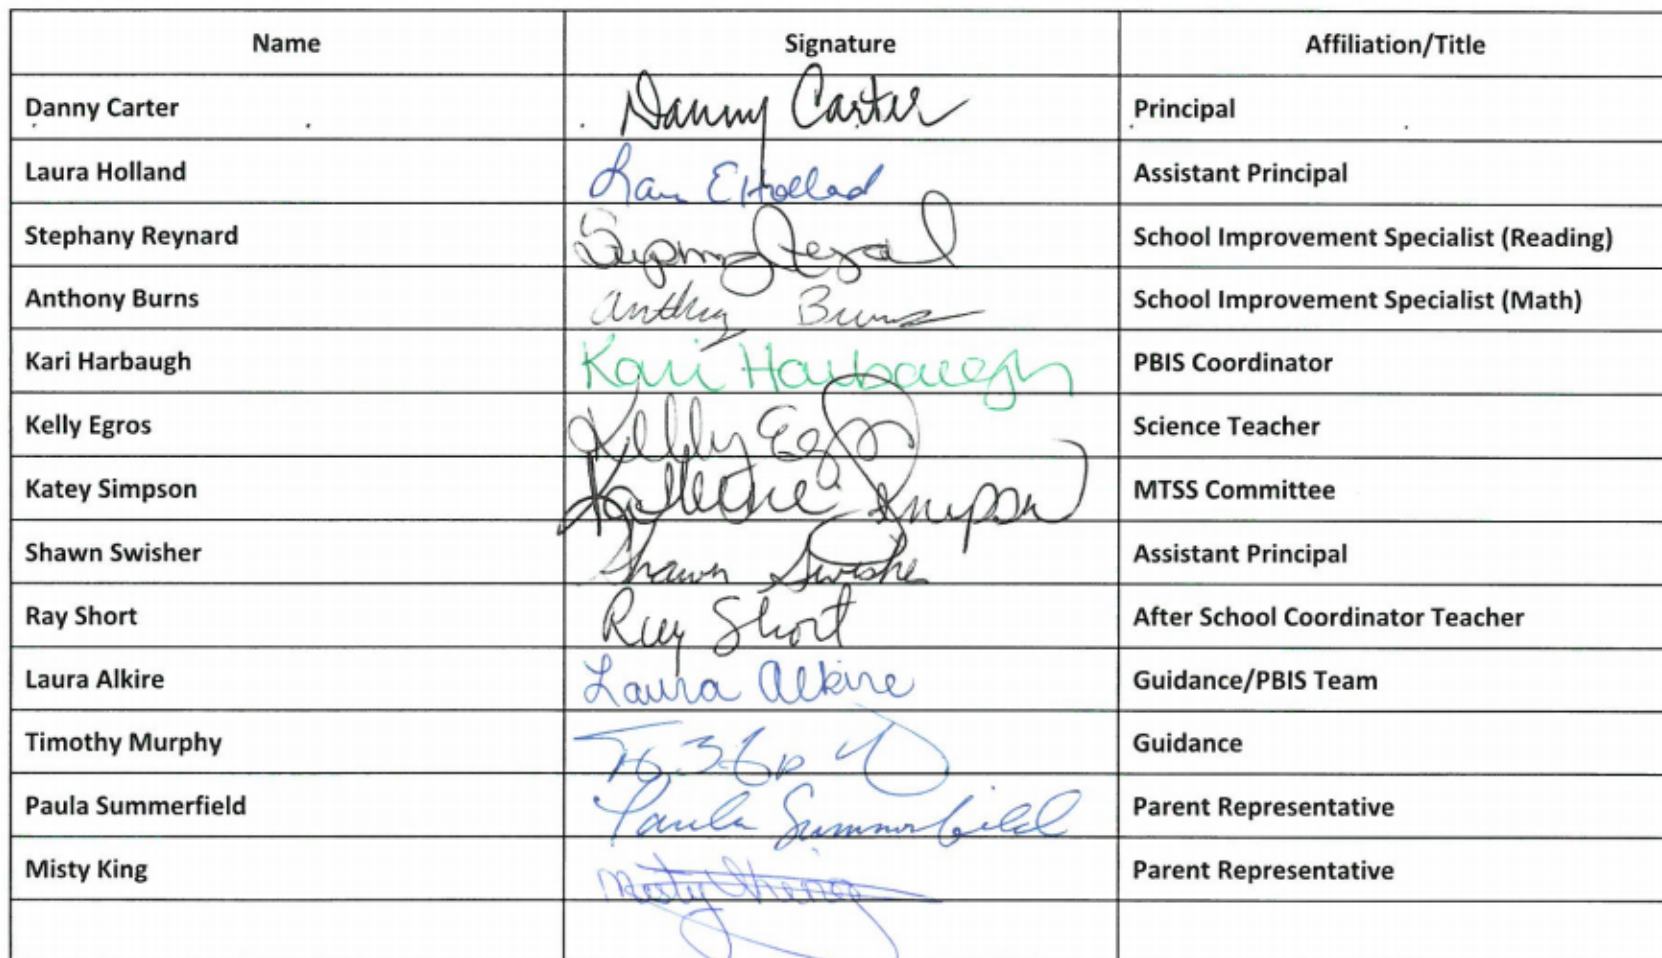 Name Signature Affiliation/Title
Danny Carter Danny Carter Principal
Laura Holland Laura E Holland Assistant Principal
Stephany Reynard School Improvement Specialist (Reading)
Anthony Burns Anthony Burns School Improvement Specialist (Math)
Kari Harbaugh Kari Harbaugh PBIS Coordinator
Kelly Egros Kelly Egros Science Teacher
Katey Simpson Simpson MTSS Committee
Shawn Swisher Shawn Swisher Assistant Principal
Ray Short Ray Short After School Coordinator Teacher
Laura Alkire Laura Alkire Guidance/PBIS Team
Timothy Murphy Guidance
Paula Summerfield Paula Summerfield Parent Representative
Misty King Misty King Parent Representative